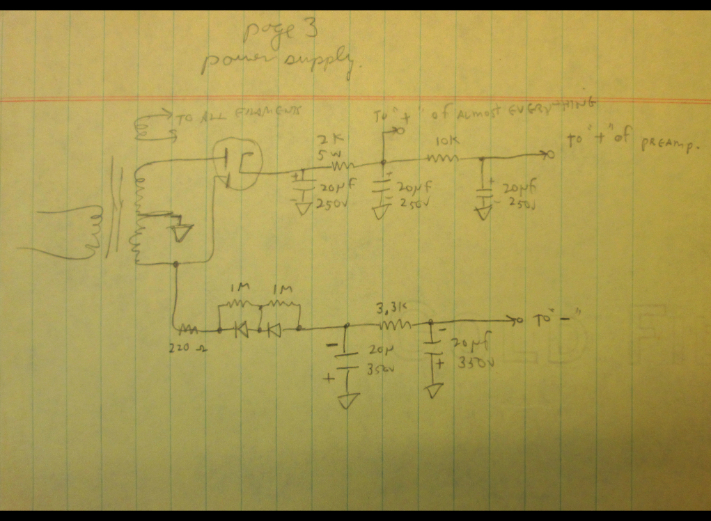 page 3
power supply.
TO ALL FILAMENTS
TO "+" of ALMOST EVERYTHING
2K
5W
10K
TO "+" of PREAMP.
+
20µF
-
250V
-
20µF
-
250V
+
20µF
-
250V
1M
1M
220 Ω
3,3K
TO "-"
-
20µ
+
350V
-
20µF
+
350V